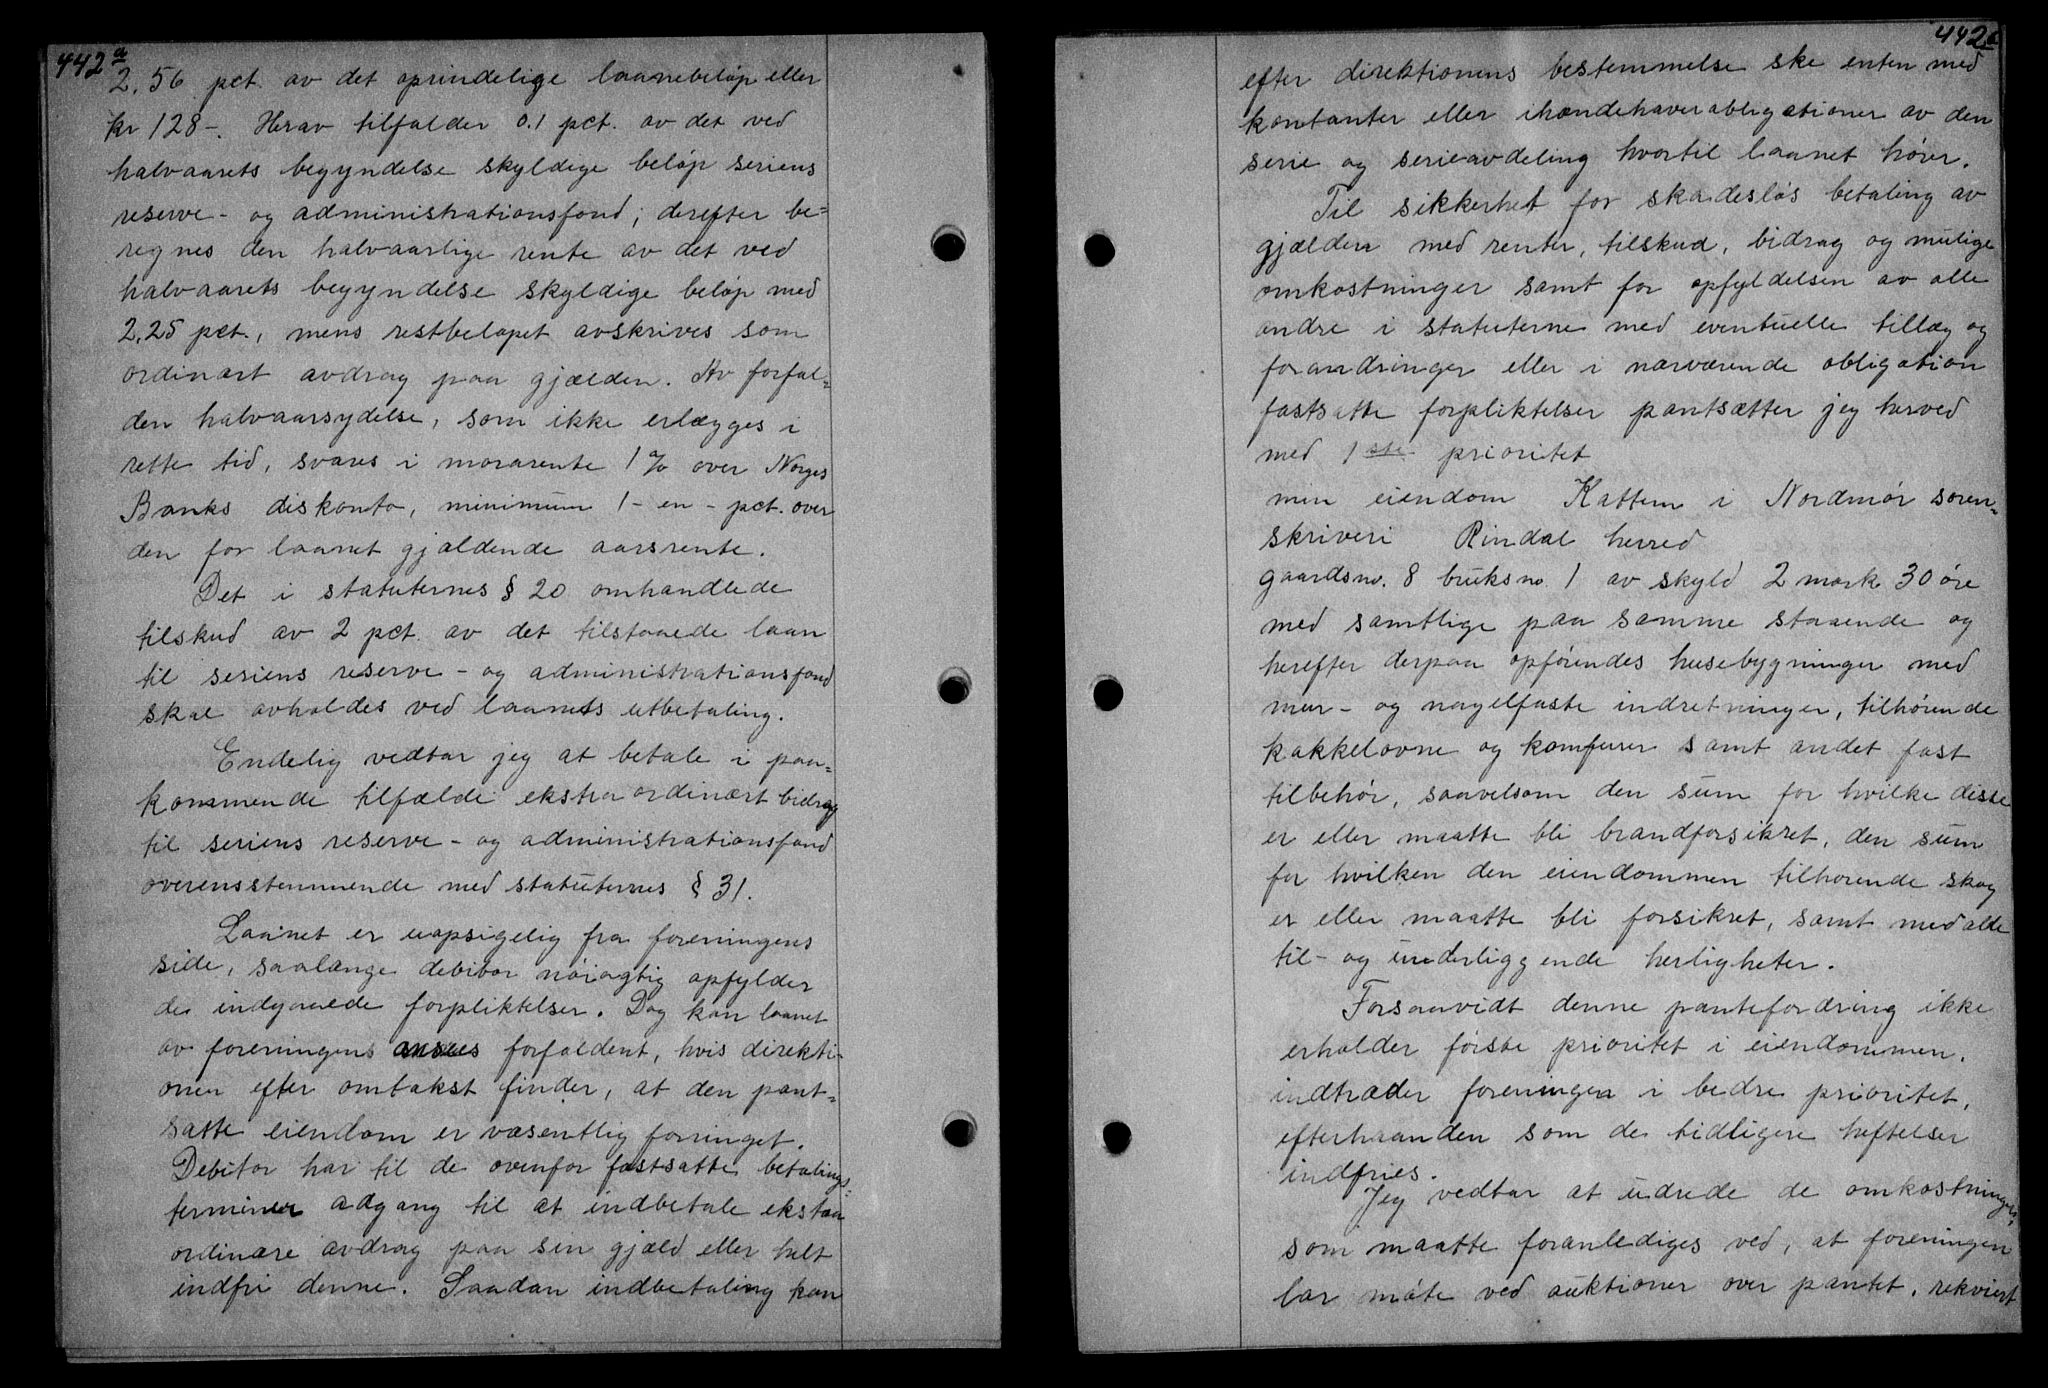 442a
2.56 pct. av det oprindelige laanebeløp eller
kr 128-. Herav tilfalder 0.1 pct. av det ved
halvaarets begyndelse skyldige beløp seriens
reserve- og administrationsfond; derefter be=
regnes den halvaarlige rente av det ved
halvaarets begyndelse skyldige beløp med
2.25 pct., mens restbeløpet avskrives som
ordinært avdrag paa gjælden. Av forfal=
den halvaarsydelse, som ikke erlægges i
rette tid, svares i morarente 1% over Norges
Banks diskonto, minimum 1- en - pct. over
den for laanet gjældende aarsrente.
Det i statuternes § 20 omhandlede
tilskud av 2 pct. av det tilstaaede laan
til seriens reserve- og administrationsfond
skal avholdes ved laanets utbetaling.
Endelig vedtar jeg at betale i paa=
kommende tilfælde ekstraordinært bidrag
til seriens reserve- og administrationsfond
overensstemmende med statuternes § 31.
Laanet er uopsigelig fra foreningens
side, saalænge debitor nøiagtig opfylder
de indgaaede forpliktelser. Dog kan laanet
av foreningens ansees forfaldent, hvis direkti-
onen efter omtakst finder, at den pant=
satte eiendom er væsentlig forringet.
Debitor har til de ovenfor fastsatte betalings=
terminer adgang til at indbetale ekstra
ordinære avdrag paa sin gjæld eller helt
indfri denne. Saadan indbetaling kan
442
efter direktionens bestemmelse ske enten med
kontanter eller ihændehaverobligationer av den
serie og serieavdeling hvortil laanet hører.
Til sikkerhet for skadesløs betaling av
gjælden med renter, tilskud, bidrag og mulige
omkostninger samt for opfyldelsen av alle
andre i statuterne med eventuelle tillæg og
forandringer eller i nærværende obligation
fastsatte forpliktelser pantsætter jeg herved
med 1ste prioritet
min eiendom Kattem i Nordmør soren=
skriveri Rindal herred
gaardsno. 8 bruksno. 1 av skyld 2 mark 30 øre
med samtlige paa samme staaende og
herefter derpaa opførendes husebygninger med
mur- og nagelfaste indretninger, tilhørende
kakkelovne og komfurer samt andet fast
tilbehør, saavelsom den sum for hvilke disse
er eller maatte bli brandforsikret, den sum
for hvilken den eiendommen tilhørende skog
er eller maatte bli forsikret, samt med alle
til- og underliggende herligheter.
Forsaavidt denne pantefordring ikke
erholder første prioritet i eiendommen,
indtræder foreningen i bedre prioritet,
efterhaanden som de tidligere heftelser
indfries.
Jeg vedtar at udrede de omkostninger,
som maatte foranlediges ved, at foreningen
lar møte ved auktioner over pantet, rekvirert